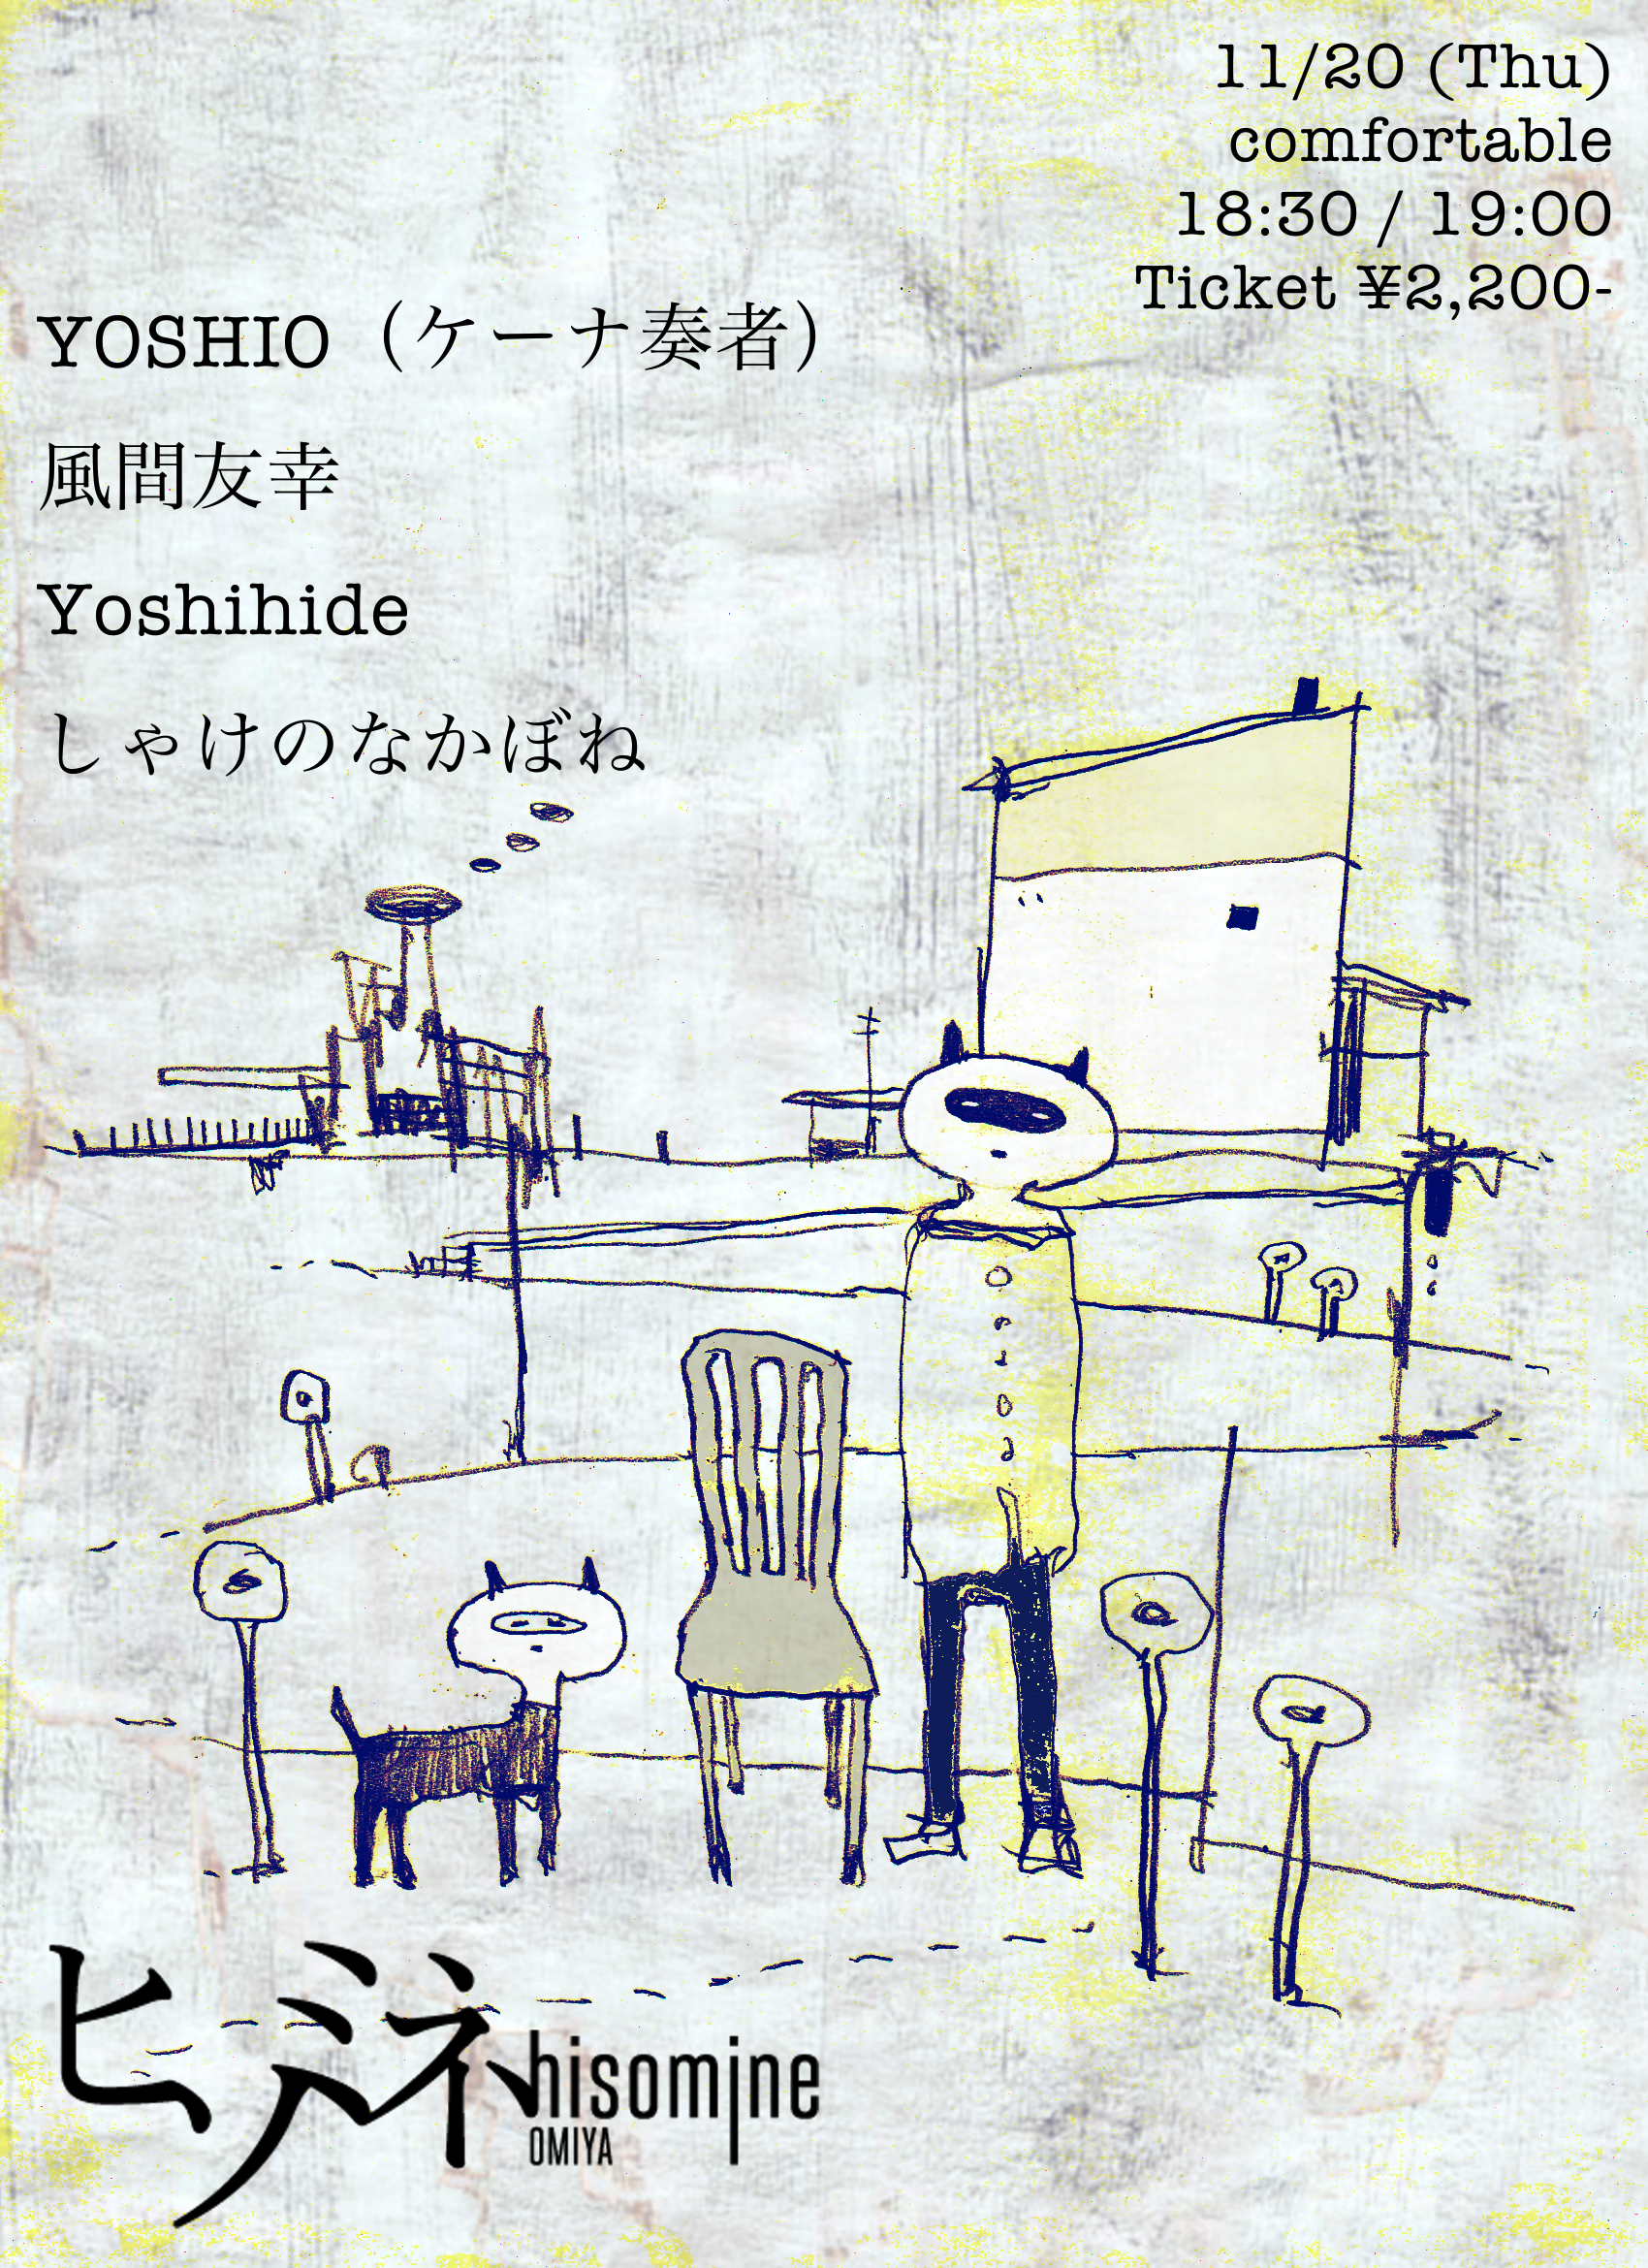 11/20 (Thu)
comfortable
18:30 / 19:00
Ticket ¥2,200-
YOSHIO（ケーナ奏者）
風間友幸
Yoshihide
しゃけのなかぼね
ヒソミネ
hisomine
OMIYA